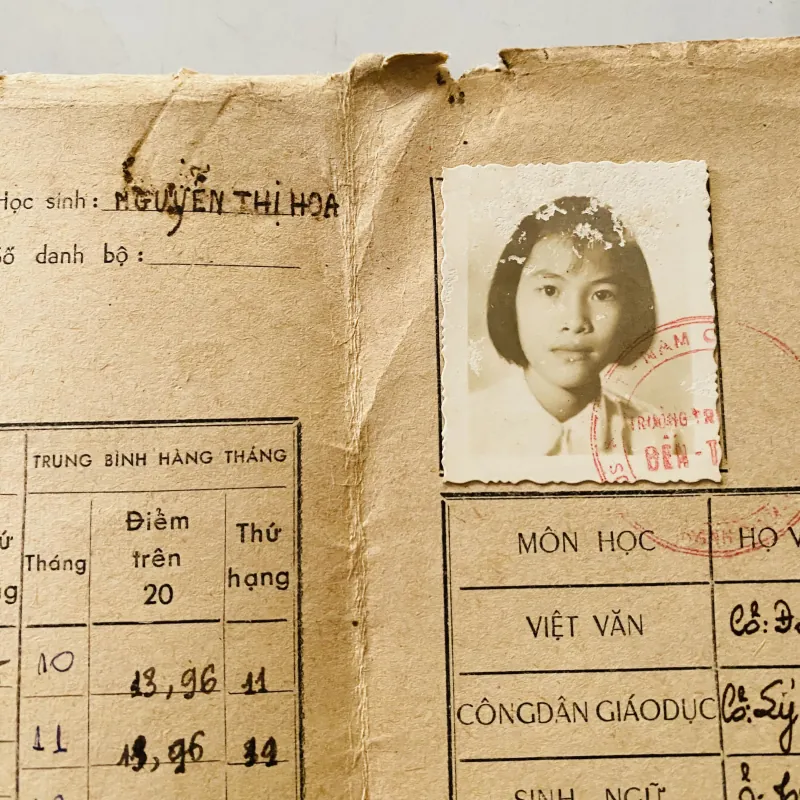 Học sinh: NGUYỄN THỊ HOA
Số danh bộ:
TRUNG BÌNH HÀNG THÁNG
Tháng
Điểm trên 20
Thứ hạng
10 13,96 11
11 13,96
NAM
TRƯỜNG
BẾN-T
MÔN HỌC
HỌ V
VIỆT VĂN
Cô:
CÔNGDÂN GIÁODỤC
Cô: Lý
SINH NGỮ